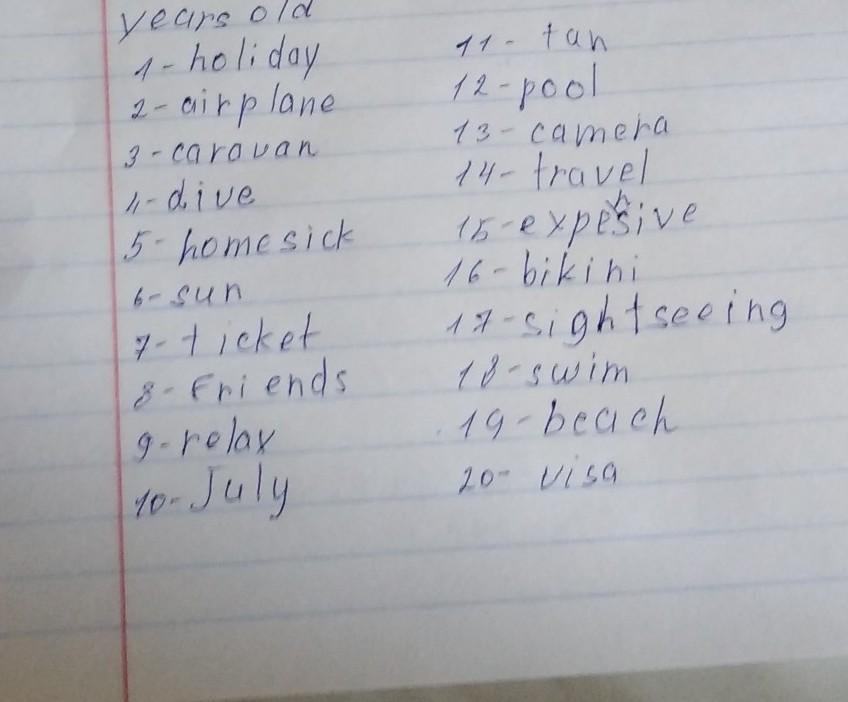 years old
1- holiday
2- airplane
3- caravan
4- dive
5- homesick
6- sun
7- ticket
8- Friends
9- relax
10- July
11- tan
12- pool
13- camera
14- travel
15- expensive
16- bikini
17- sightseeing
18- swim
19- beach
20- visa